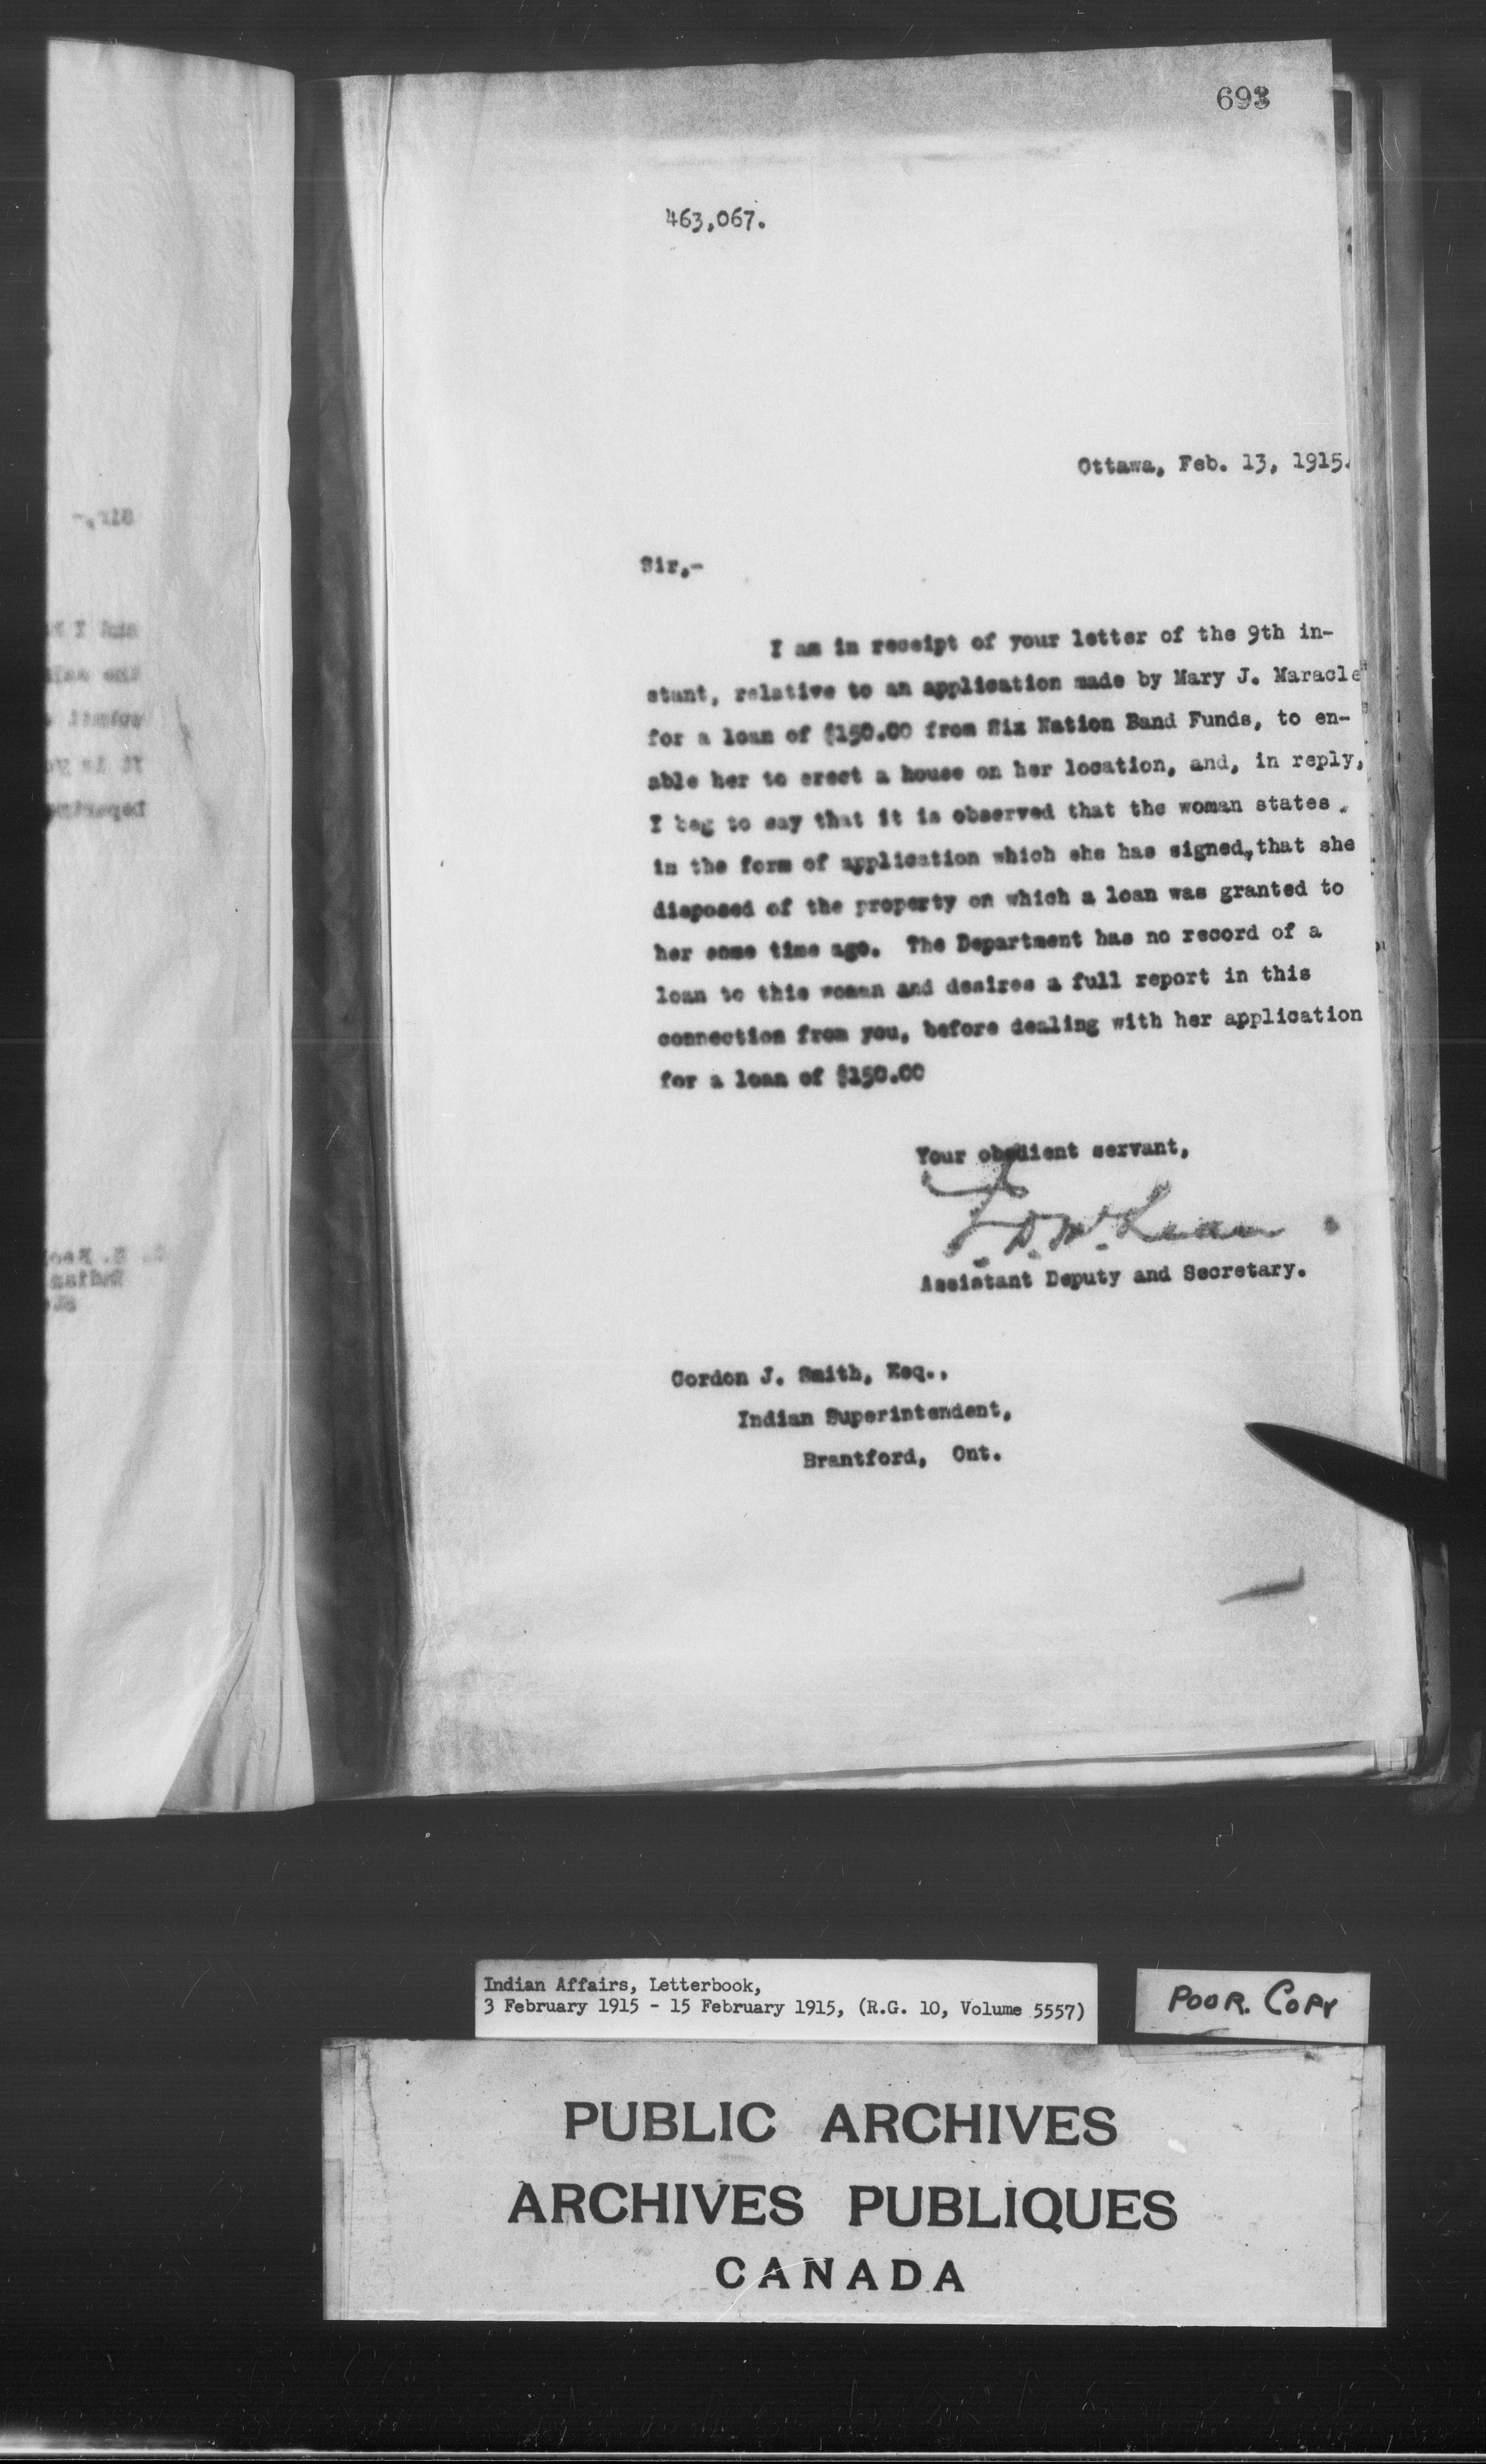 693
463,067.
Ottawa, Feb. 13, 1915.
Sir,-
I am in receipt of your letter of the 9th in-
stant, relative to an application made by Mary J. Maracle
for a loan of $150.00 from Six Nation Band Funds, to en-
able her to erect a house on her location, and, in reply,
I beg to say that it is observed that the woman states,
in the form of application which she has signed, that she
disposed of the property on which a loan was granted to
her some time ago. The Department has no record of a
loan to this woman and desires a full report in this
connection from you, before dealing with her application
for a loan of $150.00
Your obedient servant,
J. D. McLean
Assistant Deputy and Secretary.
Gordon J. Smith, Esq.,
Indian Superintendent,
Brantford, Ont.
Indian Affairs, Letterbook,
3 February 1915 - 15 February 1915, (R.G. 10, Volume 5557)
POOR. COPY
PUBLIC ARCHIVES
ARCHIVES PUBLIQUES
CANADA